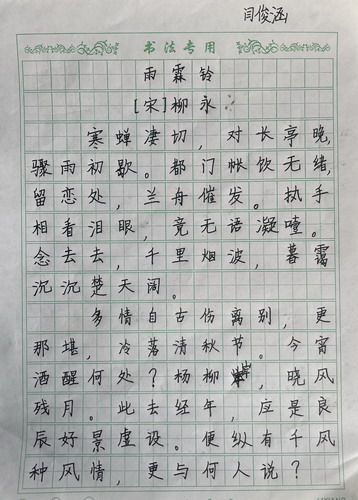 闫俊涵
书法专用
雨霖铃
[宋]柳永
寒蝉凄切,对长亭晚,
骤雨初歇。都门帐饮无绪,
留恋处,兰舟催发。执手
相看泪眼,竟无语凝噎。
念去去,千里烟波,暮霭
沉沉楚天阔。
多情自古伤离别,更
那堪,冷落清秋节。今宵
酒醒何处?杨柳岸,晓风
残月。此去经年,应是良
辰好景虚设。便纵有千风
种风情,更与何人说?